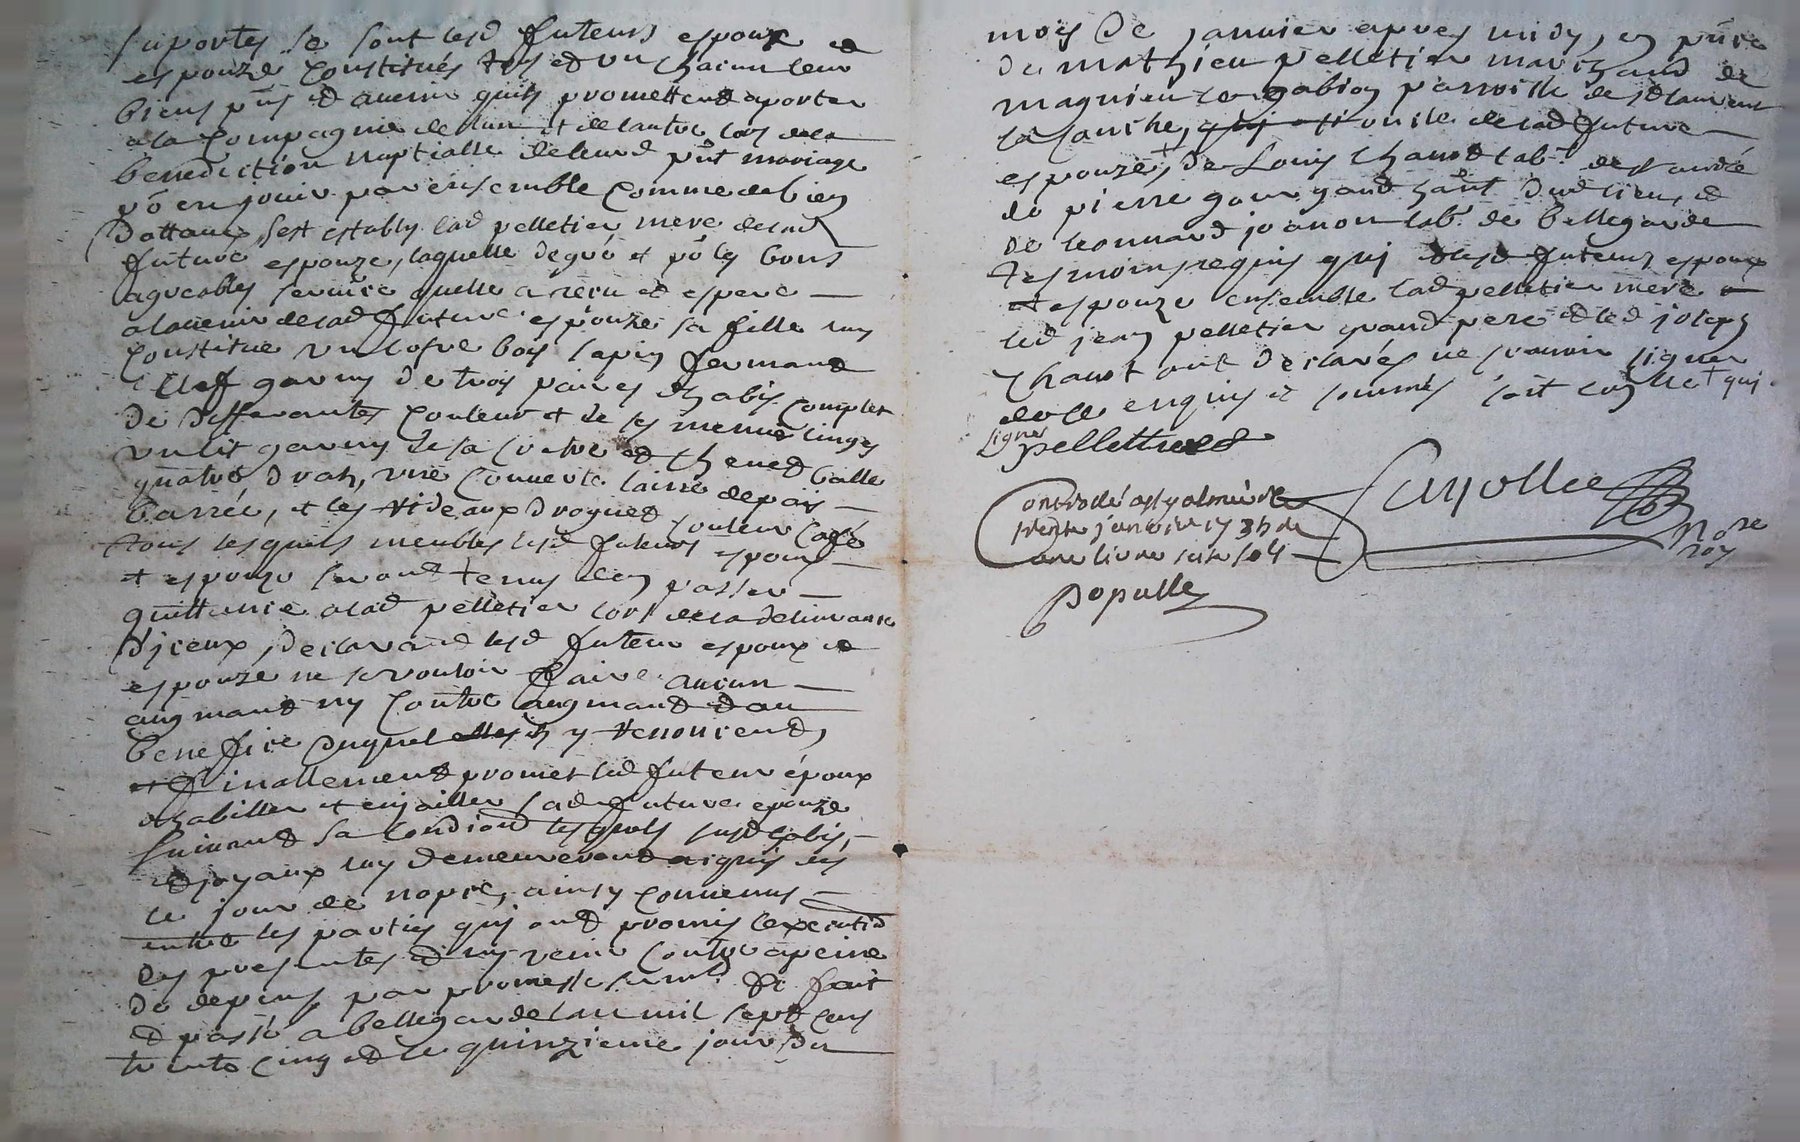 suportes se sont lesd futeurs espoux et
espouze constitués tous et un chacun leur
biens pnts et avenir quils promettent aporter
a la compagnie de lun et de lautre lors de la
benediction nuptialle deleurd pnt mariage
po en jouir par ensemble comme de bien
dottaux, sest estably lad pelletier mere de lad
future espouze, laquelle de gré et po les bons
agreables service quelle a reçu et espere
a lavenir de lad future espouze sa fille luy
constitue un cofre bois sapin fermant
a clef garny de trois paires dhabis complet
de differantes couleur et de ses menus linges
un lit garny de sa cuetre et chevet balle
quatre drap, une couverte laine de pais
barrée, et les rideaux droguet couleur café
tous lesquels meubles lesd futeurs espoux
et espouze seront tenus den passer
quittance a lad pelletier lors de la delivrance
diceux, declarant lesd futeur espoux et
espouze ne se vouloir faire aucun
augmant ny contre augmant et au
benefice duquel ils y renoncent,
et finallement promet led futeur époux
dhabiller et enjoailler sad future epouze
suivant sa condiond lesquels susd habis,
et joyaux luy demeureront aquis dés
le jour de nopce, ainsy convenus
entre les parties qui ont promis lexecution
des presentes et ny venir contre a peine
de depens par promesse serm.t &c fait
et passé a bellegarde lan mil sept cens
trente cinq et le quinzieme jour du
mois de janvier apres midy, en pnce
de mathieu pelletier marchand de
magnieu le gabion parroisse de st laurent
la conche, oncle de lad future
espouze, de Louis chanot lab.r de st andré
de pierre gourgand hant dud lieu, et
de leonnard joanon lab.r de bellegarde
tesmoins requis qui lesd futeurs espoux
et espouze ensemble lad pelletier mere
led jean pelletier grand pere et led joseph
chanot ont declarés ne scavoir signer
de ce enquis et sommés soit cog lle + qui
signer
pelletier
Controllé a st galmier le
trente janvier 1735 de
une livre seise sols
Populle
Cayollie
No.re
roy